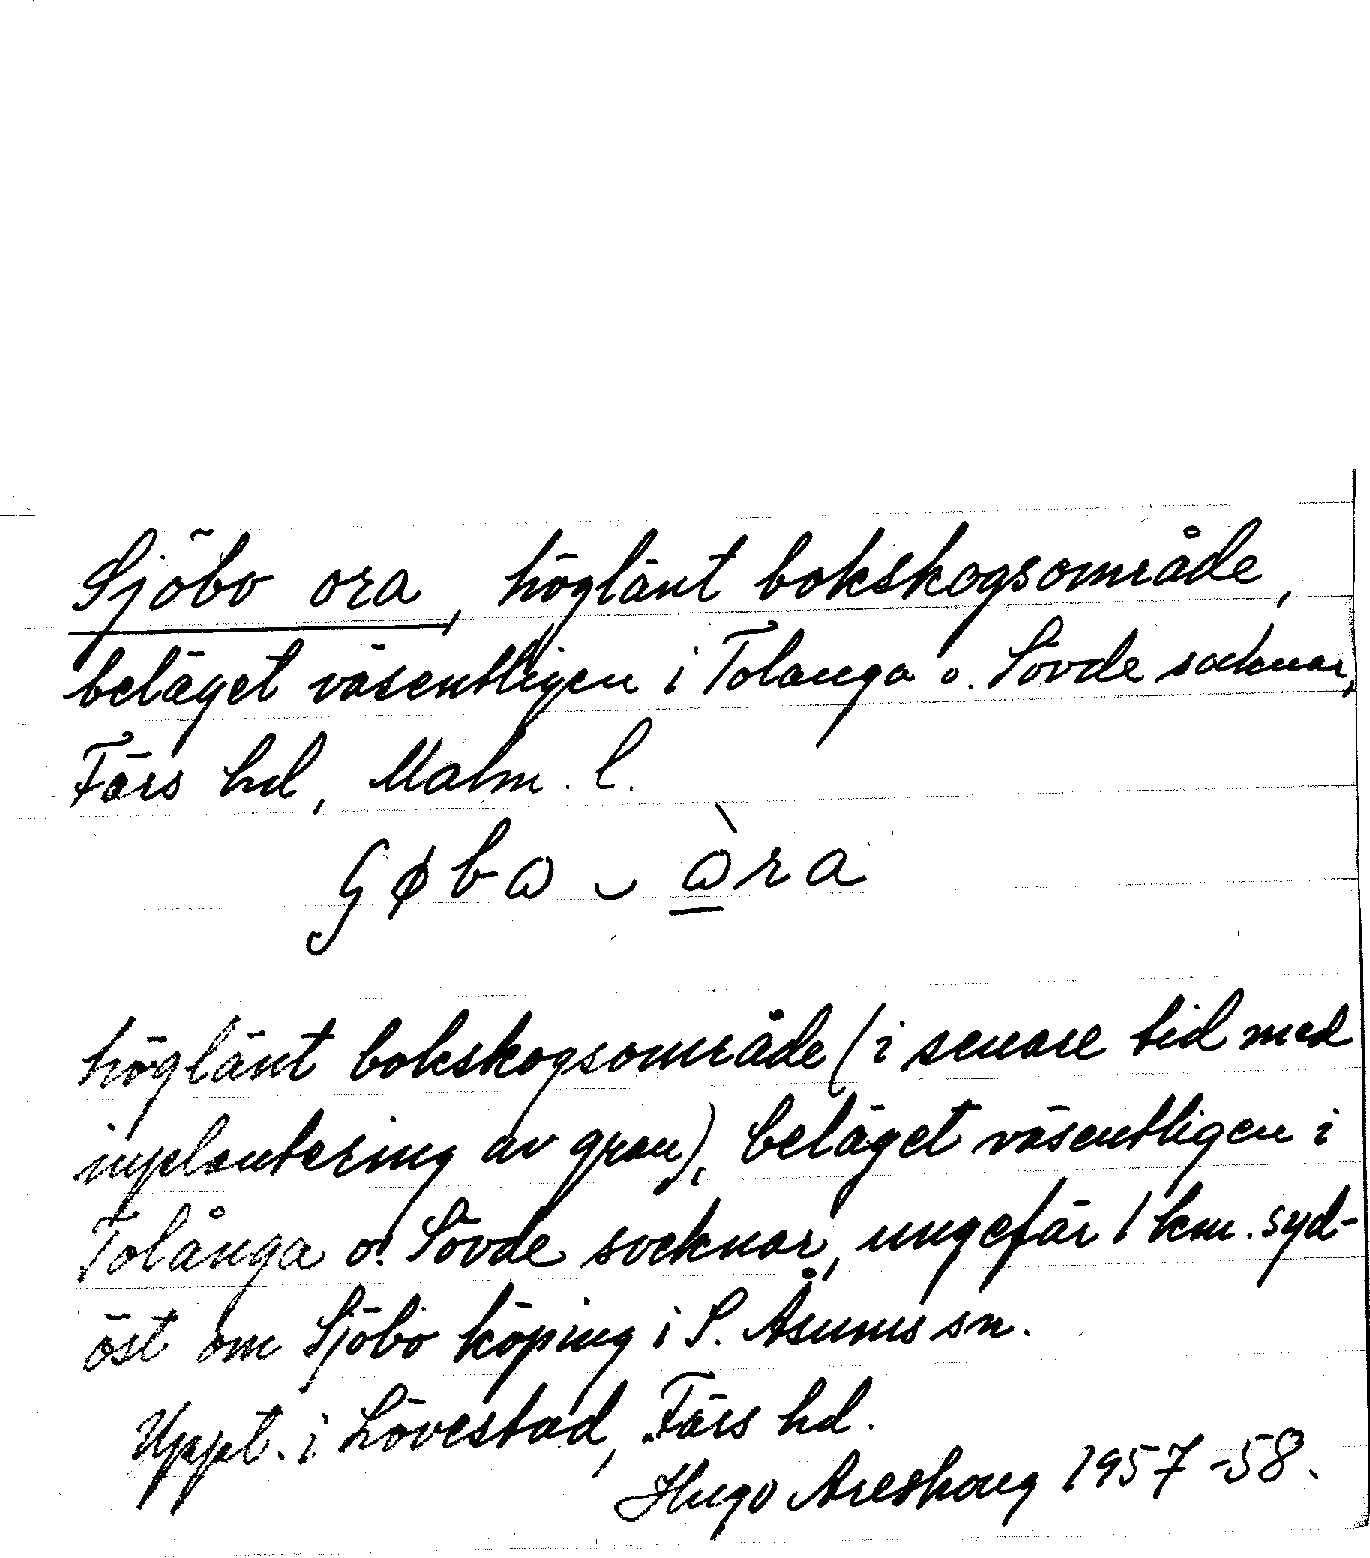 Sjöbo ora, höglänt bokskogsområde,
beläget väsentligen i Tolanga o. Sövde socknar,
Färs hd, Malm. l.
höglänt bokskogsområde (i senare tid med
inplantering av gran), beläget väsentligen i
Tolånga o. Sövde socknar, ungefär 1 km. syd-
öst om Sjöbo köping i S. Åsums sn.
Uppt. i Lövestad, Färs hd.
Hugo Areskoug 1957-58.